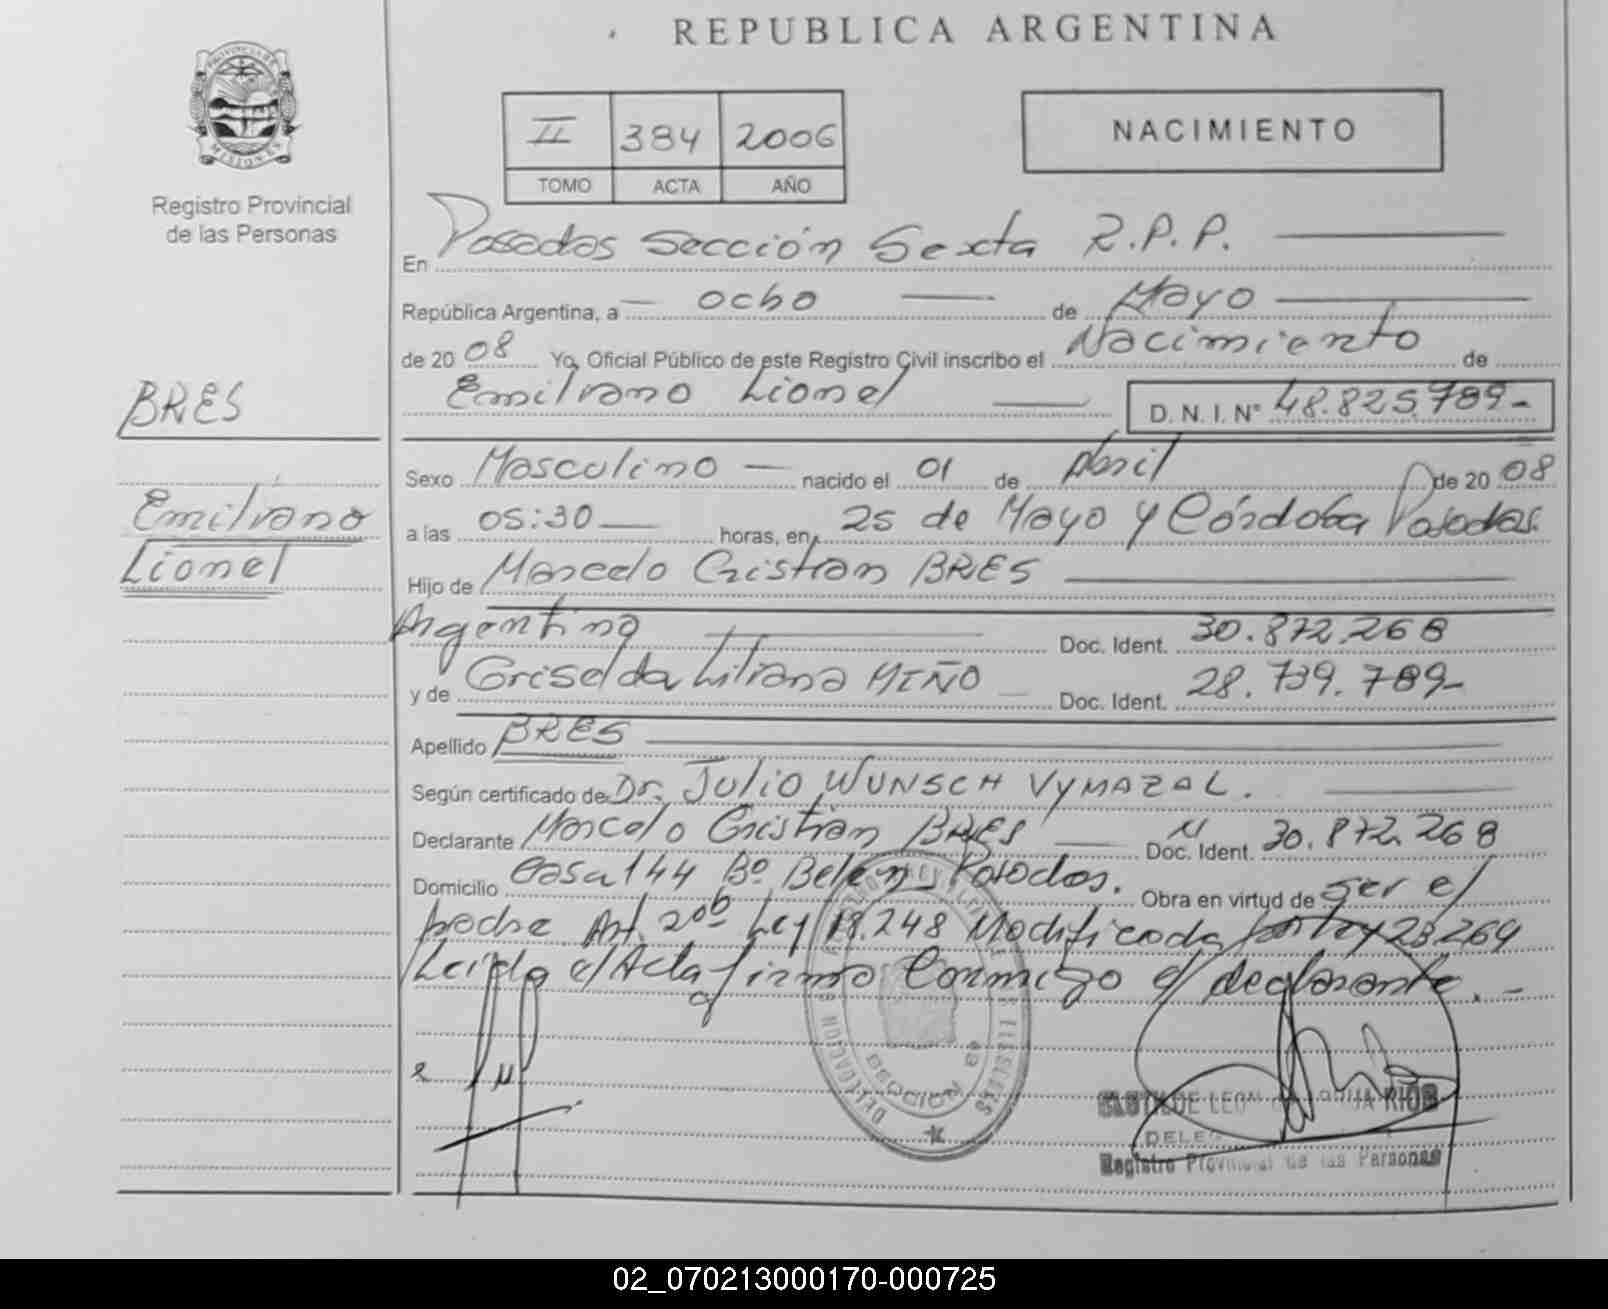 REPUBLICA ARGENTINA
PROVINCIA DE
MISIONES
Registro Provincial
de las Personas
II 384 2006
TOMO ACTA AÑO
NACIMIENTO
En Posadas Sección Sexta R.P.P.
República Argentina, a ocho de Mayo
de 20 08 Yo, Oficial Público de este Registro Civil inscribo el Nacimiento de
BRES
Emiliano Lionel D. N. I. N° 48.825.789-
Sexo Masculino nacido el 01 de Abril de 20 08
Emiliano
Lionel
a las 05:30 horas, en 25 de Mayo y Córdoba Posadas.
Hijo de Marcelo Cristian BRES
Argentino Doc. Ident. 30.872.268
y de Griselda Liliana MIÑO Doc. Ident. 28.739.789-
Apellido BRES
Según certificado de Dr. Julio WUNSCH VYMAZAL.
Declarante Marcelo Cristian BRES Doc. Ident. 30.872.268
Domicilio Casa 144 Bº Belen Posadas. Obra en virtud de ser el
padre Art. 20b Ley 18.248 Modificada por Ley 23.264
Leida el Acta firma Conmigo el declarante. -
DELEGACION
SECCION 6ª
RIOS
Registro Provincial de las Personas
02_070213000170-000725